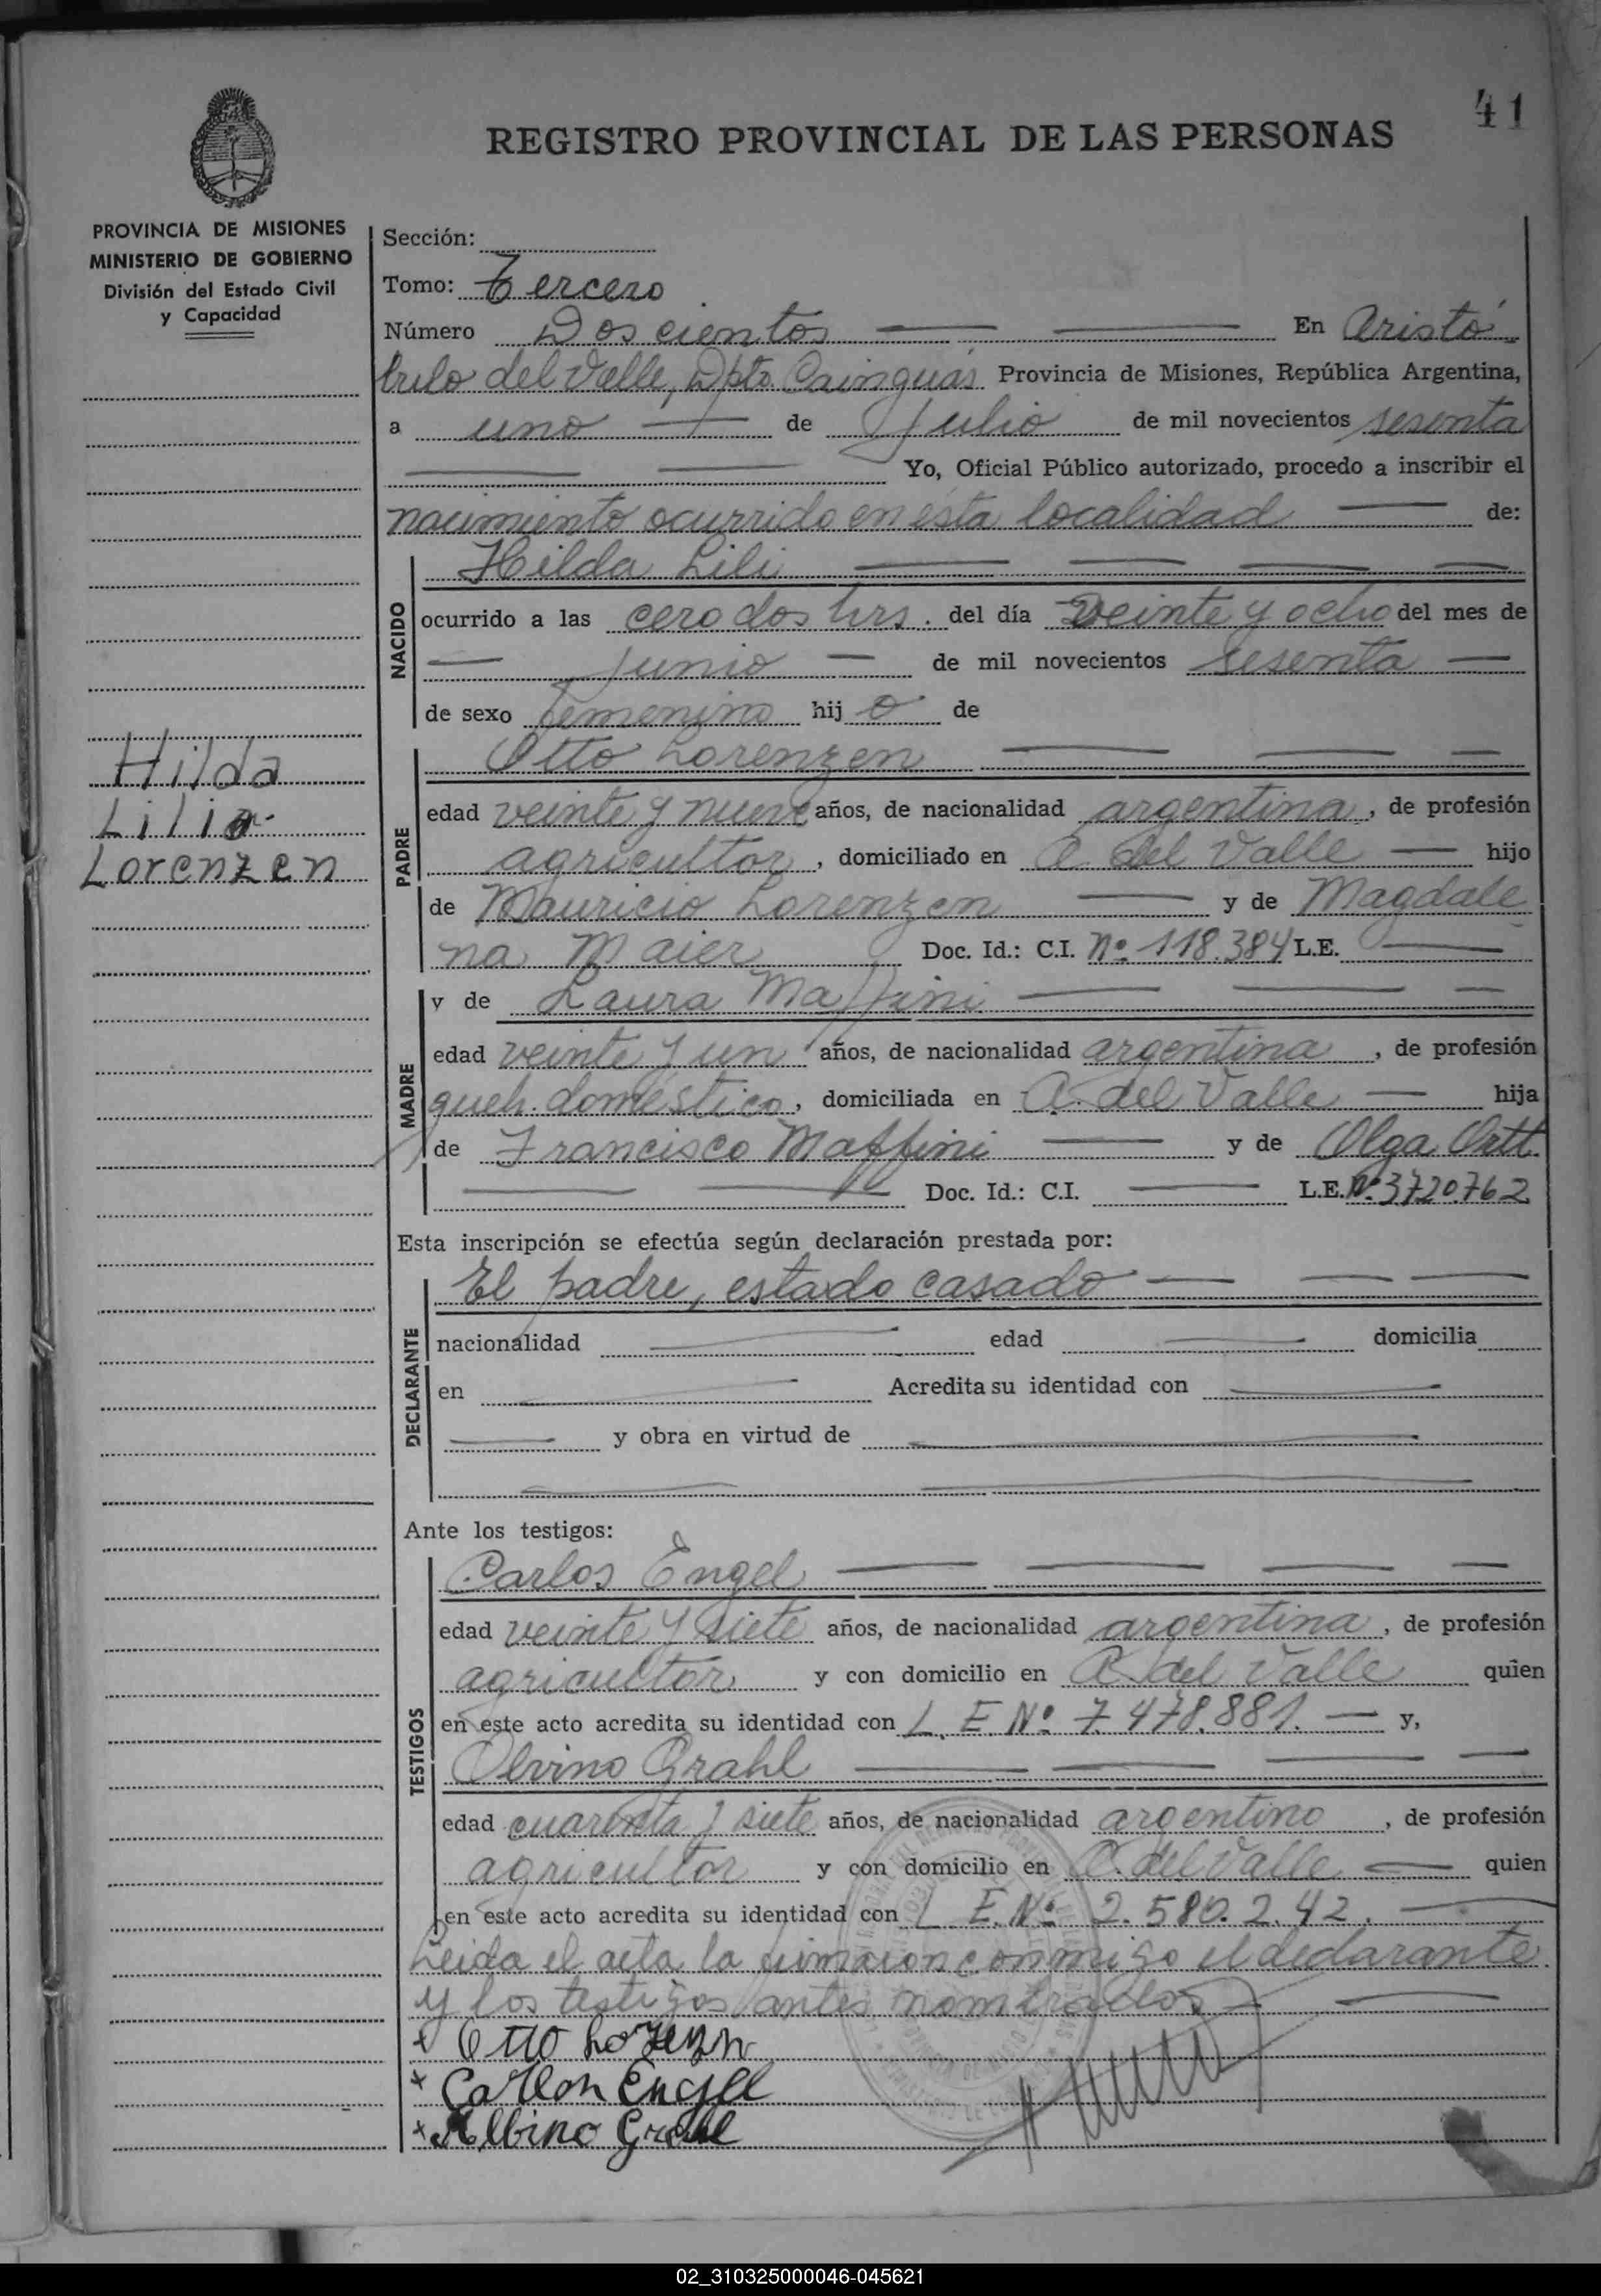 41
REGISTRO PROVINCIAL DE LAS PERSONAS
PROVINCIA DE MISIONES
MINISTERIO DE GOBIERNO
División del Estado Civil
y Capacidad
Sección:
Tomo: Tercero
Número Doscientos En Aristó
bulo del Valle, Dpto Cainguás Provincia de Misiones, República Argentina,
a uno de Julio de mil novecientos sesenta
Yo, Oficial Público autorizado, procedo a inscribir el
nacimiento ocurrido en ésta localidad de:
NACIDO
Hilda Lili
ocurrido a las cero dos hrs. del día veinte y ocho del mes de
junio de mil novecientos sesenta
de sexo femenino hij o de
Hilda
Lilia
Lorenzen
PADRE
Otto Lorenzen
edad veinte y nueve años, de nacionalidad argentina, de profesión
agricultor, domiciliado en A. del Valle hijo
de Mauricio Lorenzen y de Magdale
na Maier Doc. Id.: C.I. Nº 118.384 L.E.
MADRE
y de Laura Maffini
edad veinte y un años, de nacionalidad argentina, de profesión
queh. doméstico, domiciliada en A. del Valle hija
de Francisco Maffini y de Olga Ortt.
Doc. Id.: C.I. L.E. Nº 3720.762
Esta inscripción se efectúa según declaración prestada por:
DECLARANTE
El padre, estado casado
nacionalidad edad domicilia
en Acredita su identidad con
y obra en virtud de
Ante los testigos:
TESTIGOS
Carlos Engel
edad veinte y siete años, de nacionalidad argentina, de profesión
agricultor y con domicilio en A. del Valle quien
en este acto acredita su identidad con L. E. Nº 7.478.881. y,
Olvino Grahl
edad cuarenta y siete años, de nacionalidad argentino, de profesión
agricultor y con domicilio en A. del Valle quien
en este acto acredita su identidad con L. E. Nº 2.580.242.
Leida el acta la firmaron conmigo el declarante
y los testigos antes nombrados
x Otto Lorenzen
x Carlos Engel
x Albino Grahl
02_310325000046-045621